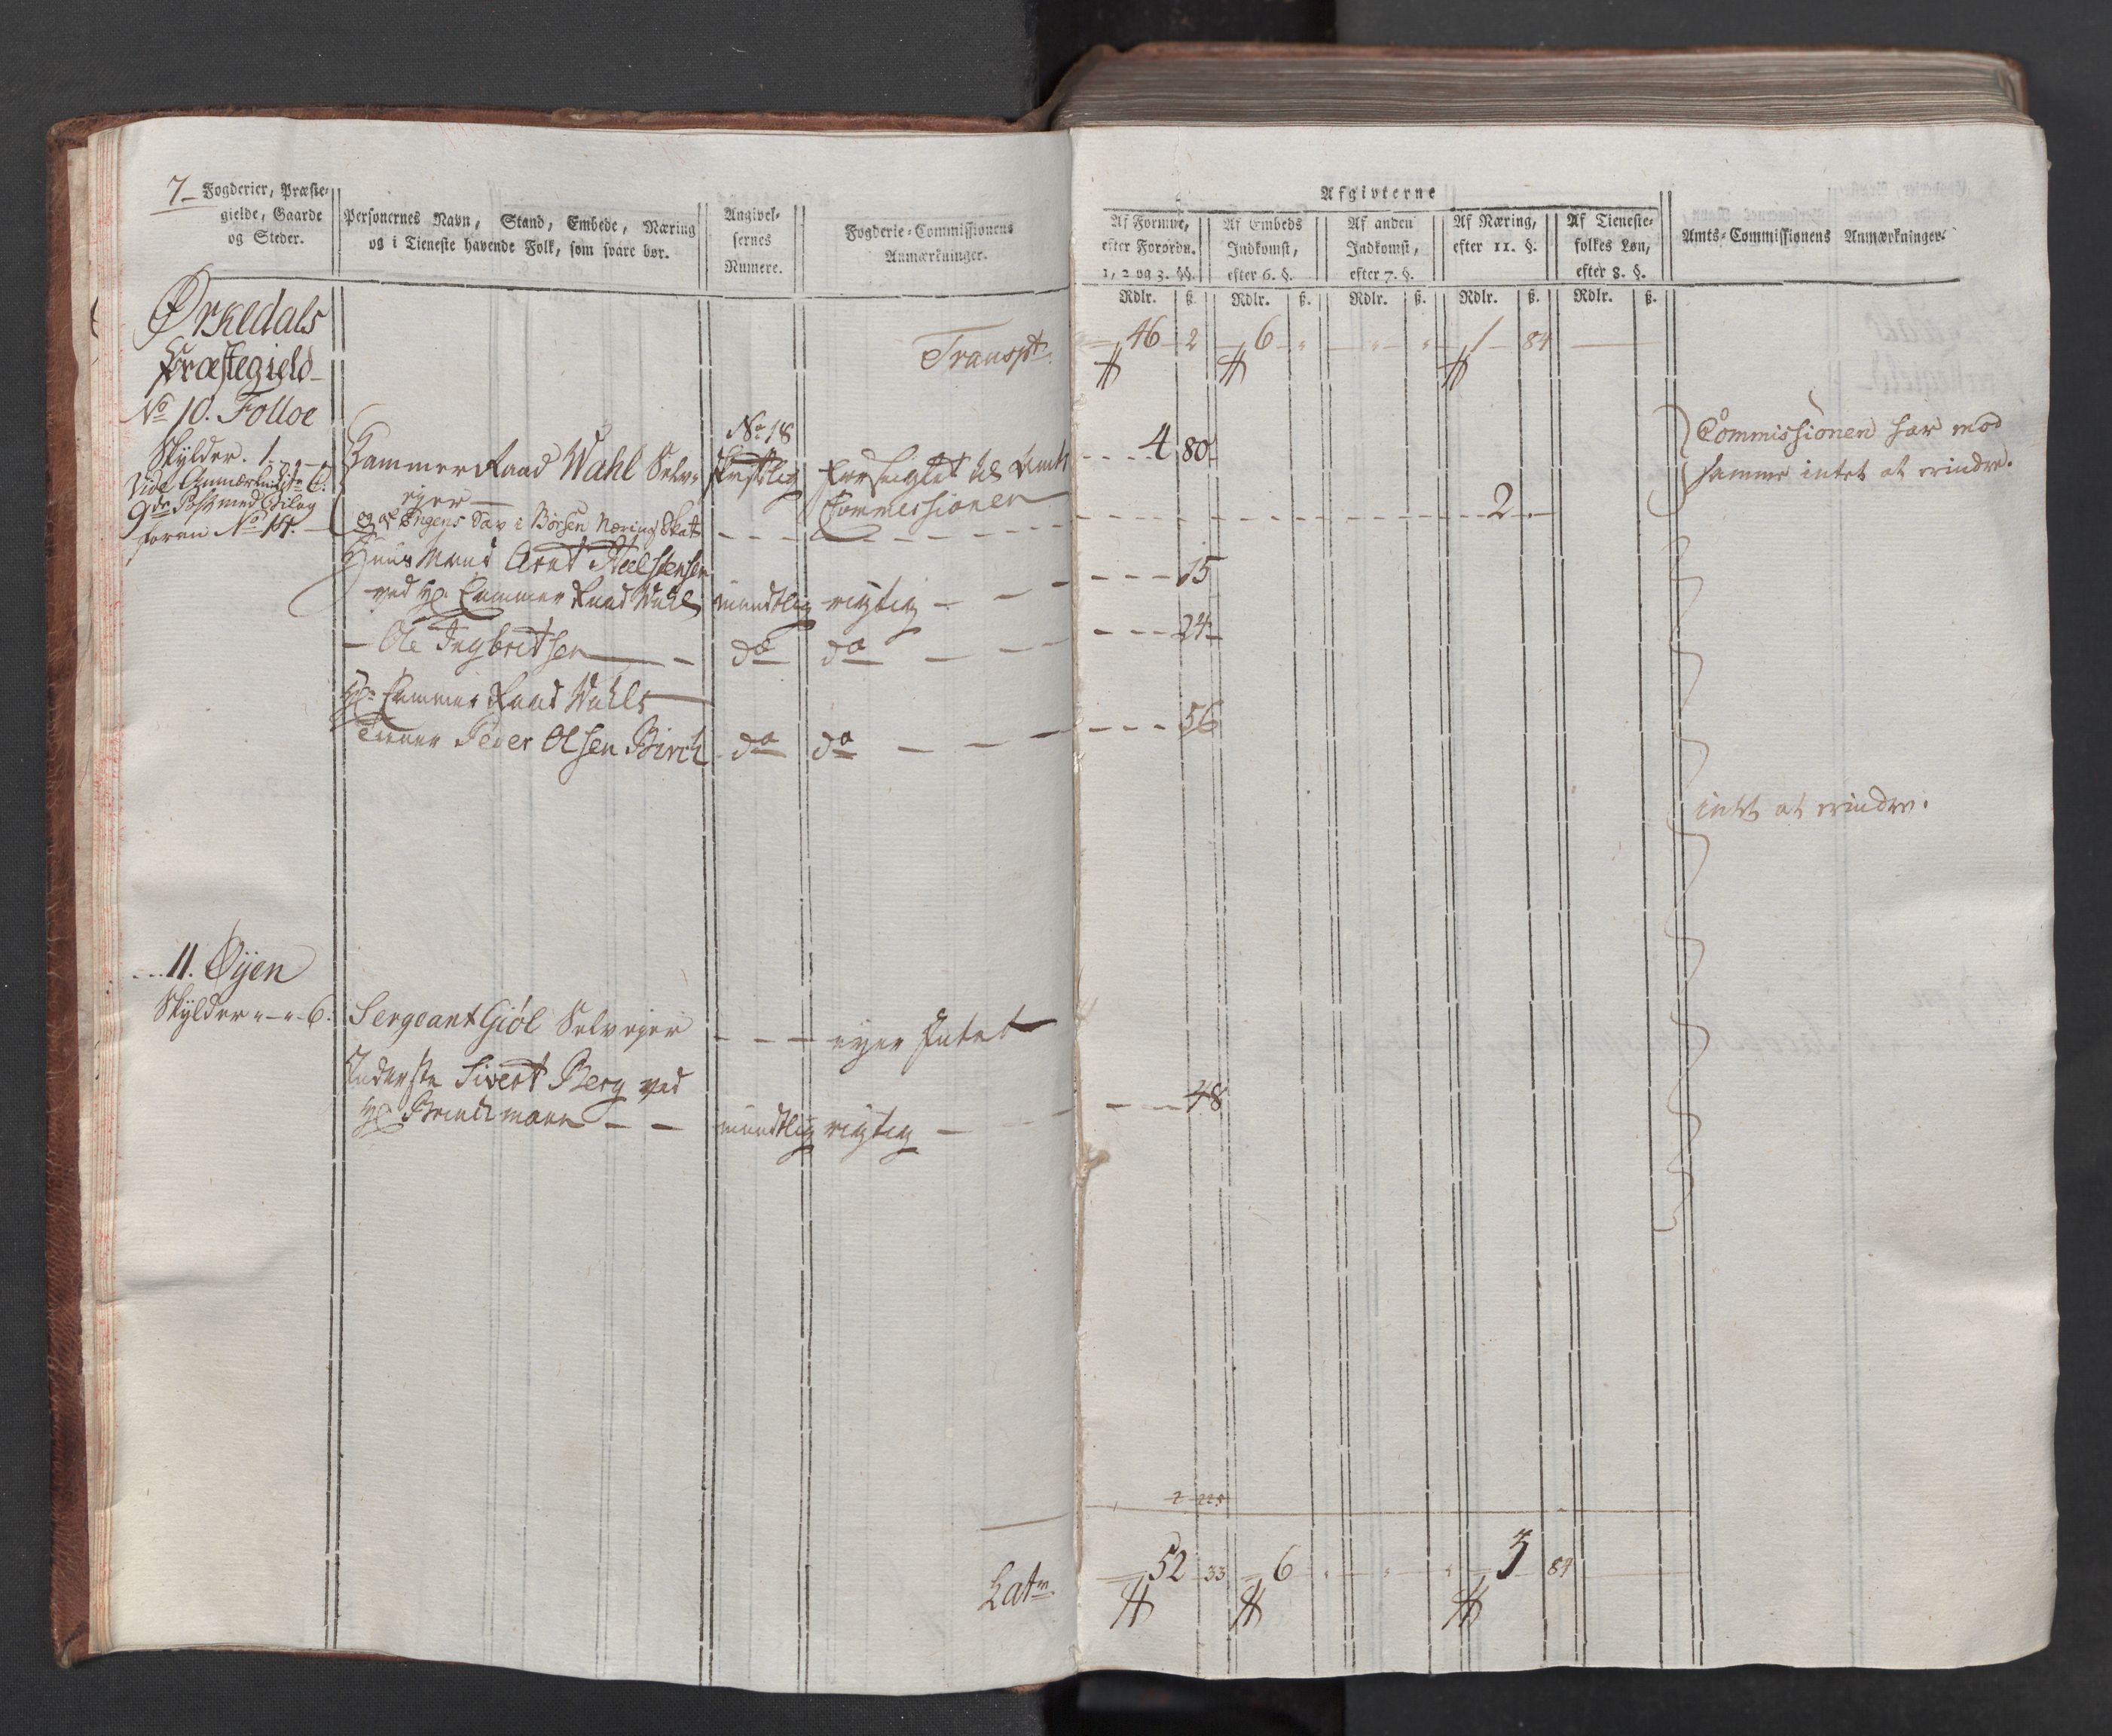 7
Fogderier, Præste-
gielde, Gaarde
og Steder.
Personernes Navn, Stand, Embede, Næring
og i Tieneste havende Folk, som svare bør.
Angivel-
sernes
Numere.
Fogderie-Commissionens
Anmærkninger.
Afgivterne
Af Formue,
efter Forordn.
1, 2 og 3. §§.
Af Embeds
Indkomst,
efter 6. §.
Af anden
Indkomst,
efter 7. §.
Af Næring,
efter 11. §.
Af Tieneste-
folkes Løn,
efter 8. §.
Amts-Commissionens Anmærkninger.
Rdlr. ß. Rdlr. ß. Rdlr. ß. Rdlr. ß. Rdlr. ß.
Ørkedals
Præstegield
Transpt. 46 2 6 1 84
No 10. Folloe
Skylder. 1.
Vide Anmærkn
9de Post med Bilag
No 14.
No 18
Kammer Raad Wahl Selv-
eyer
skriftlig forseiglet til Amts
Commissionen
4 80
Commissionen har mod
samme intet at erindre.
og af Engens Sav i Børsen Næring Skat 2
Huus Mand Arnt Steelstensen
ved Hr. Cammer Raad Wahl mundtlig rigtig 15
Ole Ingbretsen do do 24
Hr. Cammer Raad Wahls
Tiener Peder Olsen Birch do do 56
intet at erindre.
11. Øÿen
Skylder 6. Sergeant Giøl Selveyer eyer Intet
Inderste Sivert Berg ved
Hr. Brinchmann mundtlig rigtig 48
Latr. 52 33 6 3 84